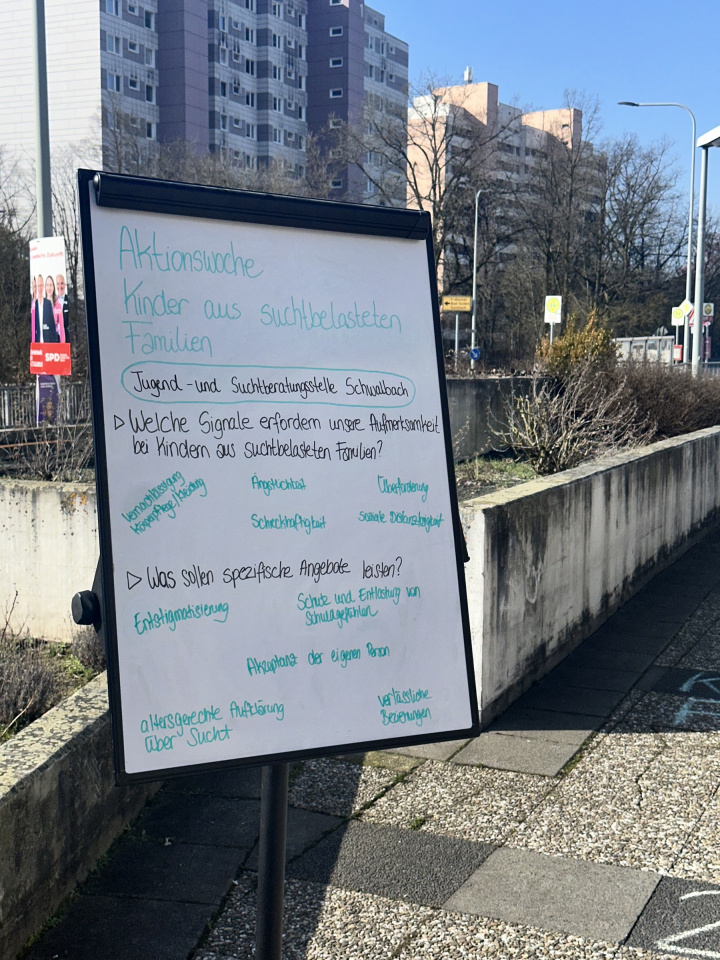 Aktionswoche
Kinder aus suchtbelasteten
Familien
Jugend - und Suchtberatungsstelle Schwalbach
▷ Welche Signale erfordern unsere Aufmerksamkeit
bei Kindern aus suchtbelasteten Familien?
Vernachlässigung
Körperpflege/Kleidung
Ängstlichkeit
Überforderung
Schreckhaftigkeit
soziale Distanzlosigkeit
▷ Was sollen spezifische Angebote leisten?
Entstigmatisierung
Schutz und Entlastung von
Schuldgefühlen
Akzeptanz der eigenen Person
altersgerechte Aufklärung
über Sucht
verlässliche
Beziehungen
SPD